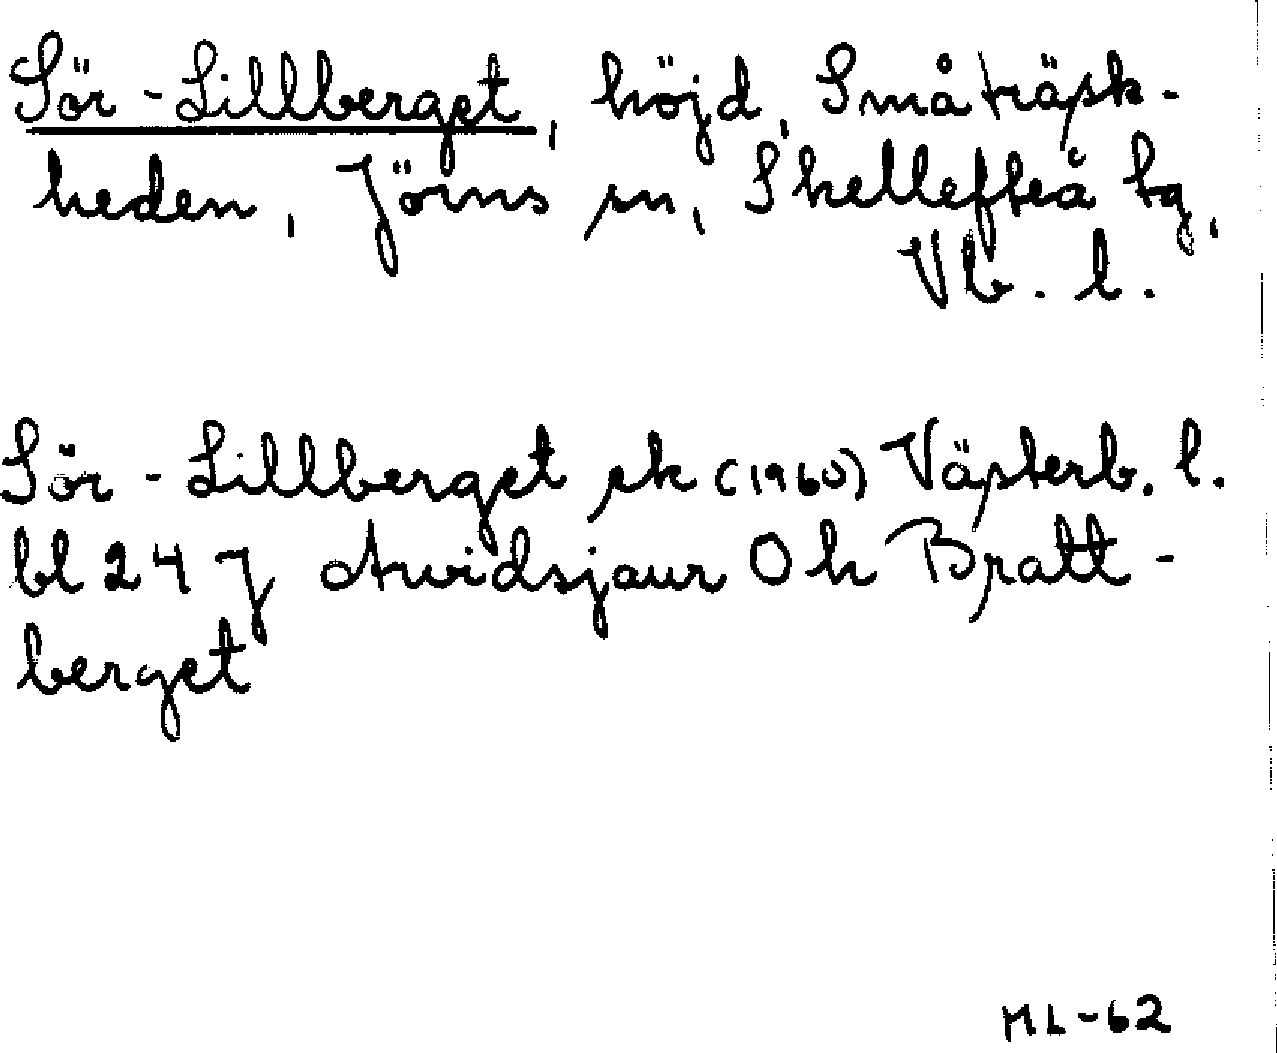 Sör-Lillberget, höjd, Småträsk-
heden, Jörns sn, Skellefteå tg,
Vb. l.
Sör-Lillberget ek (1960) Västerb. l.
bl 24 J Arvidsjaur Oh Bratt-
berget
ML-62